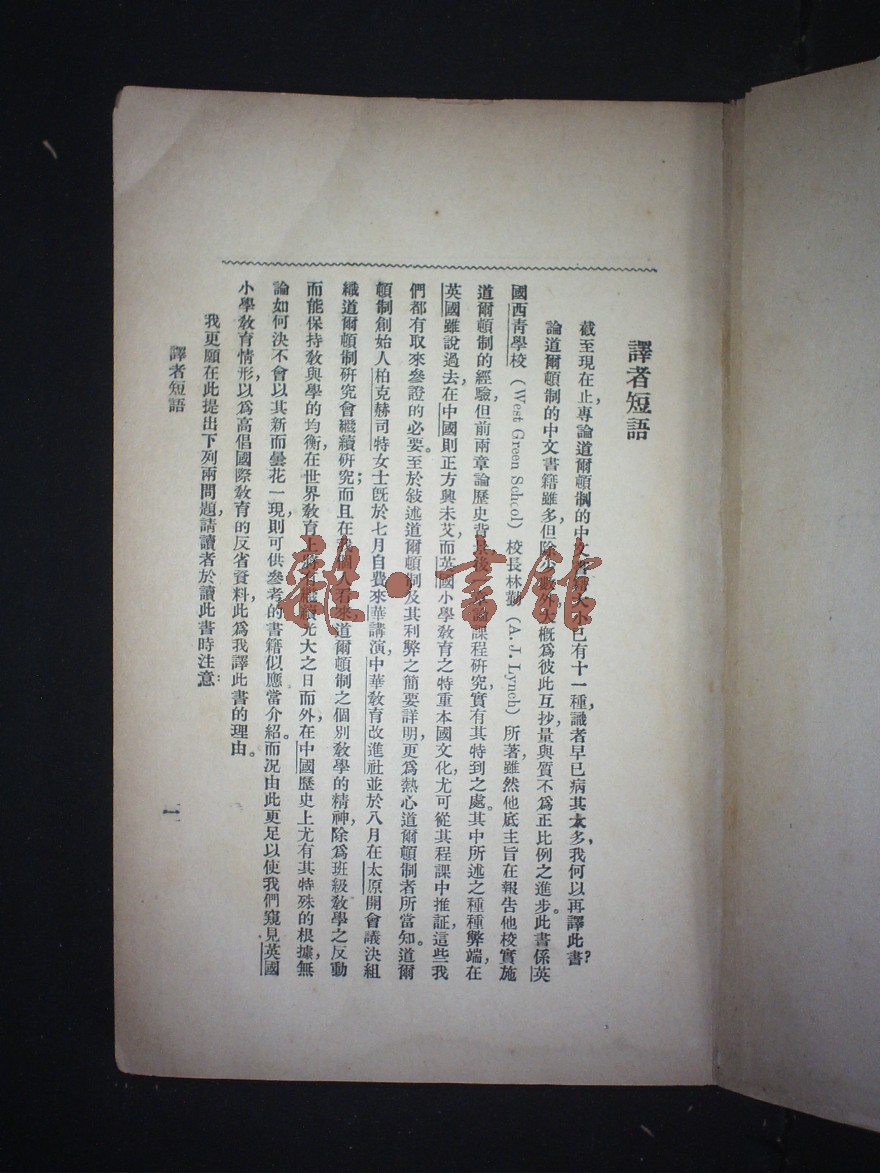 譯者短語
截至現在止，專論道爾頓制的中文書籍大小已有十一種，識者早已病其太多，我何以再譯此書？
論道爾頓制的中文書籍雖多，但除少數外，大概爲彼此互抄，量與質不爲正比例之進步。此書係英
國西青學校（West Green School）校長林勤（A. J. Lynch）所著，雖然他底主旨在報告他校實施
道爾頓制的經驗，但前兩章論歷史背景，後一章論課程研究，實有其特到之處。其中所述之種種弊端，在
英國雖說過去，在中國則正方興未艾，而英國小學教育之特重本國文化，尤可從其程課中推証，這些我
們都有取來參證的必要。至於敍述道爾頓制及其利弊之簡要詳明，更爲熱心道爾頓制者所當知。道爾
頓制創始人柏克赫司特女士旣於七月自費來華講演，中華教育改進社並於八月在太原開會議決組
織道爾頓制研究會繼續研究；而且在我個人看來，道爾頓制之個別教學的精神，除爲班級教學之反動
而能保持教與學的均衡，在世界教育上將有繼續光大之日而外，在中國歷史上尤有其特殊的根據，無
論如何決不會以其新而曇花一現，則可供參考的書籍似應當介紹。而況由此更足以使我們窺見英國
小學教育情形，以爲高倡國際教育的反省資料，此爲我譯此書的理由。
我更願在此提出下列兩問題，請讀者於讀此書時注意：
譯者短語
一
雜·書館